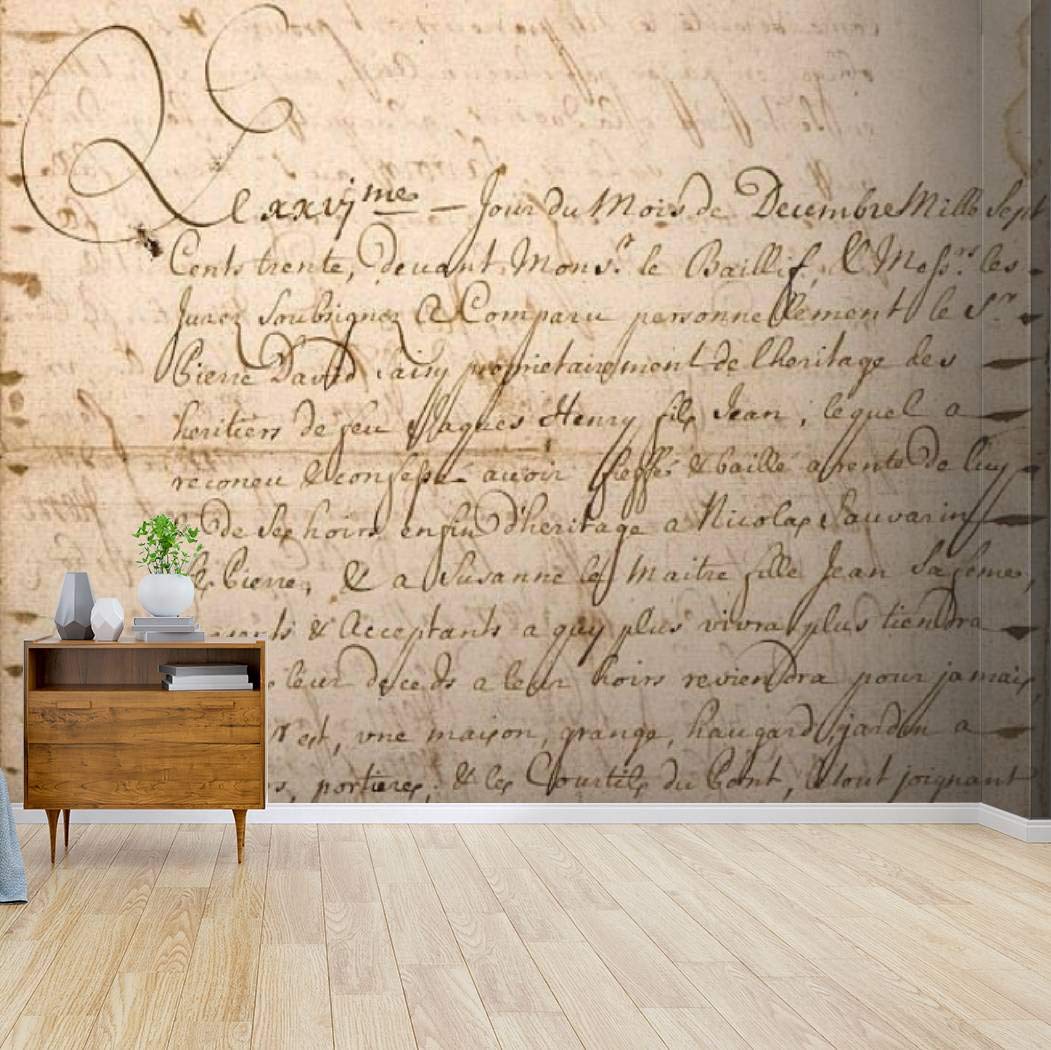 Le xxvj me — Jour du Mois de Decembre Mille Sept
Cents trente, devant Mons.r le Baillif, & Mess.rs les
Jurez Soubsignez a Comparu personnellement le S.r
Pierre David proprietairement de l'heritage des
heritiers de feu Jaques Henry fils Jean, lequel a
reconeu & confessé avoir fieffé & baillé a rente de luy
& de ses hoirs en fin d'heritage a Nicolas Sauvarin
Pierre, & a Susanne le Maitre fille Jean sa feme,
& Acceptants a quy plus vivra plus tiendra
leur deceds a leur hoirs reviendra pour jamais,
est, vne maison, grange, haugard, jardin a
portieres, & les Courtils du Pont, le tout joignant